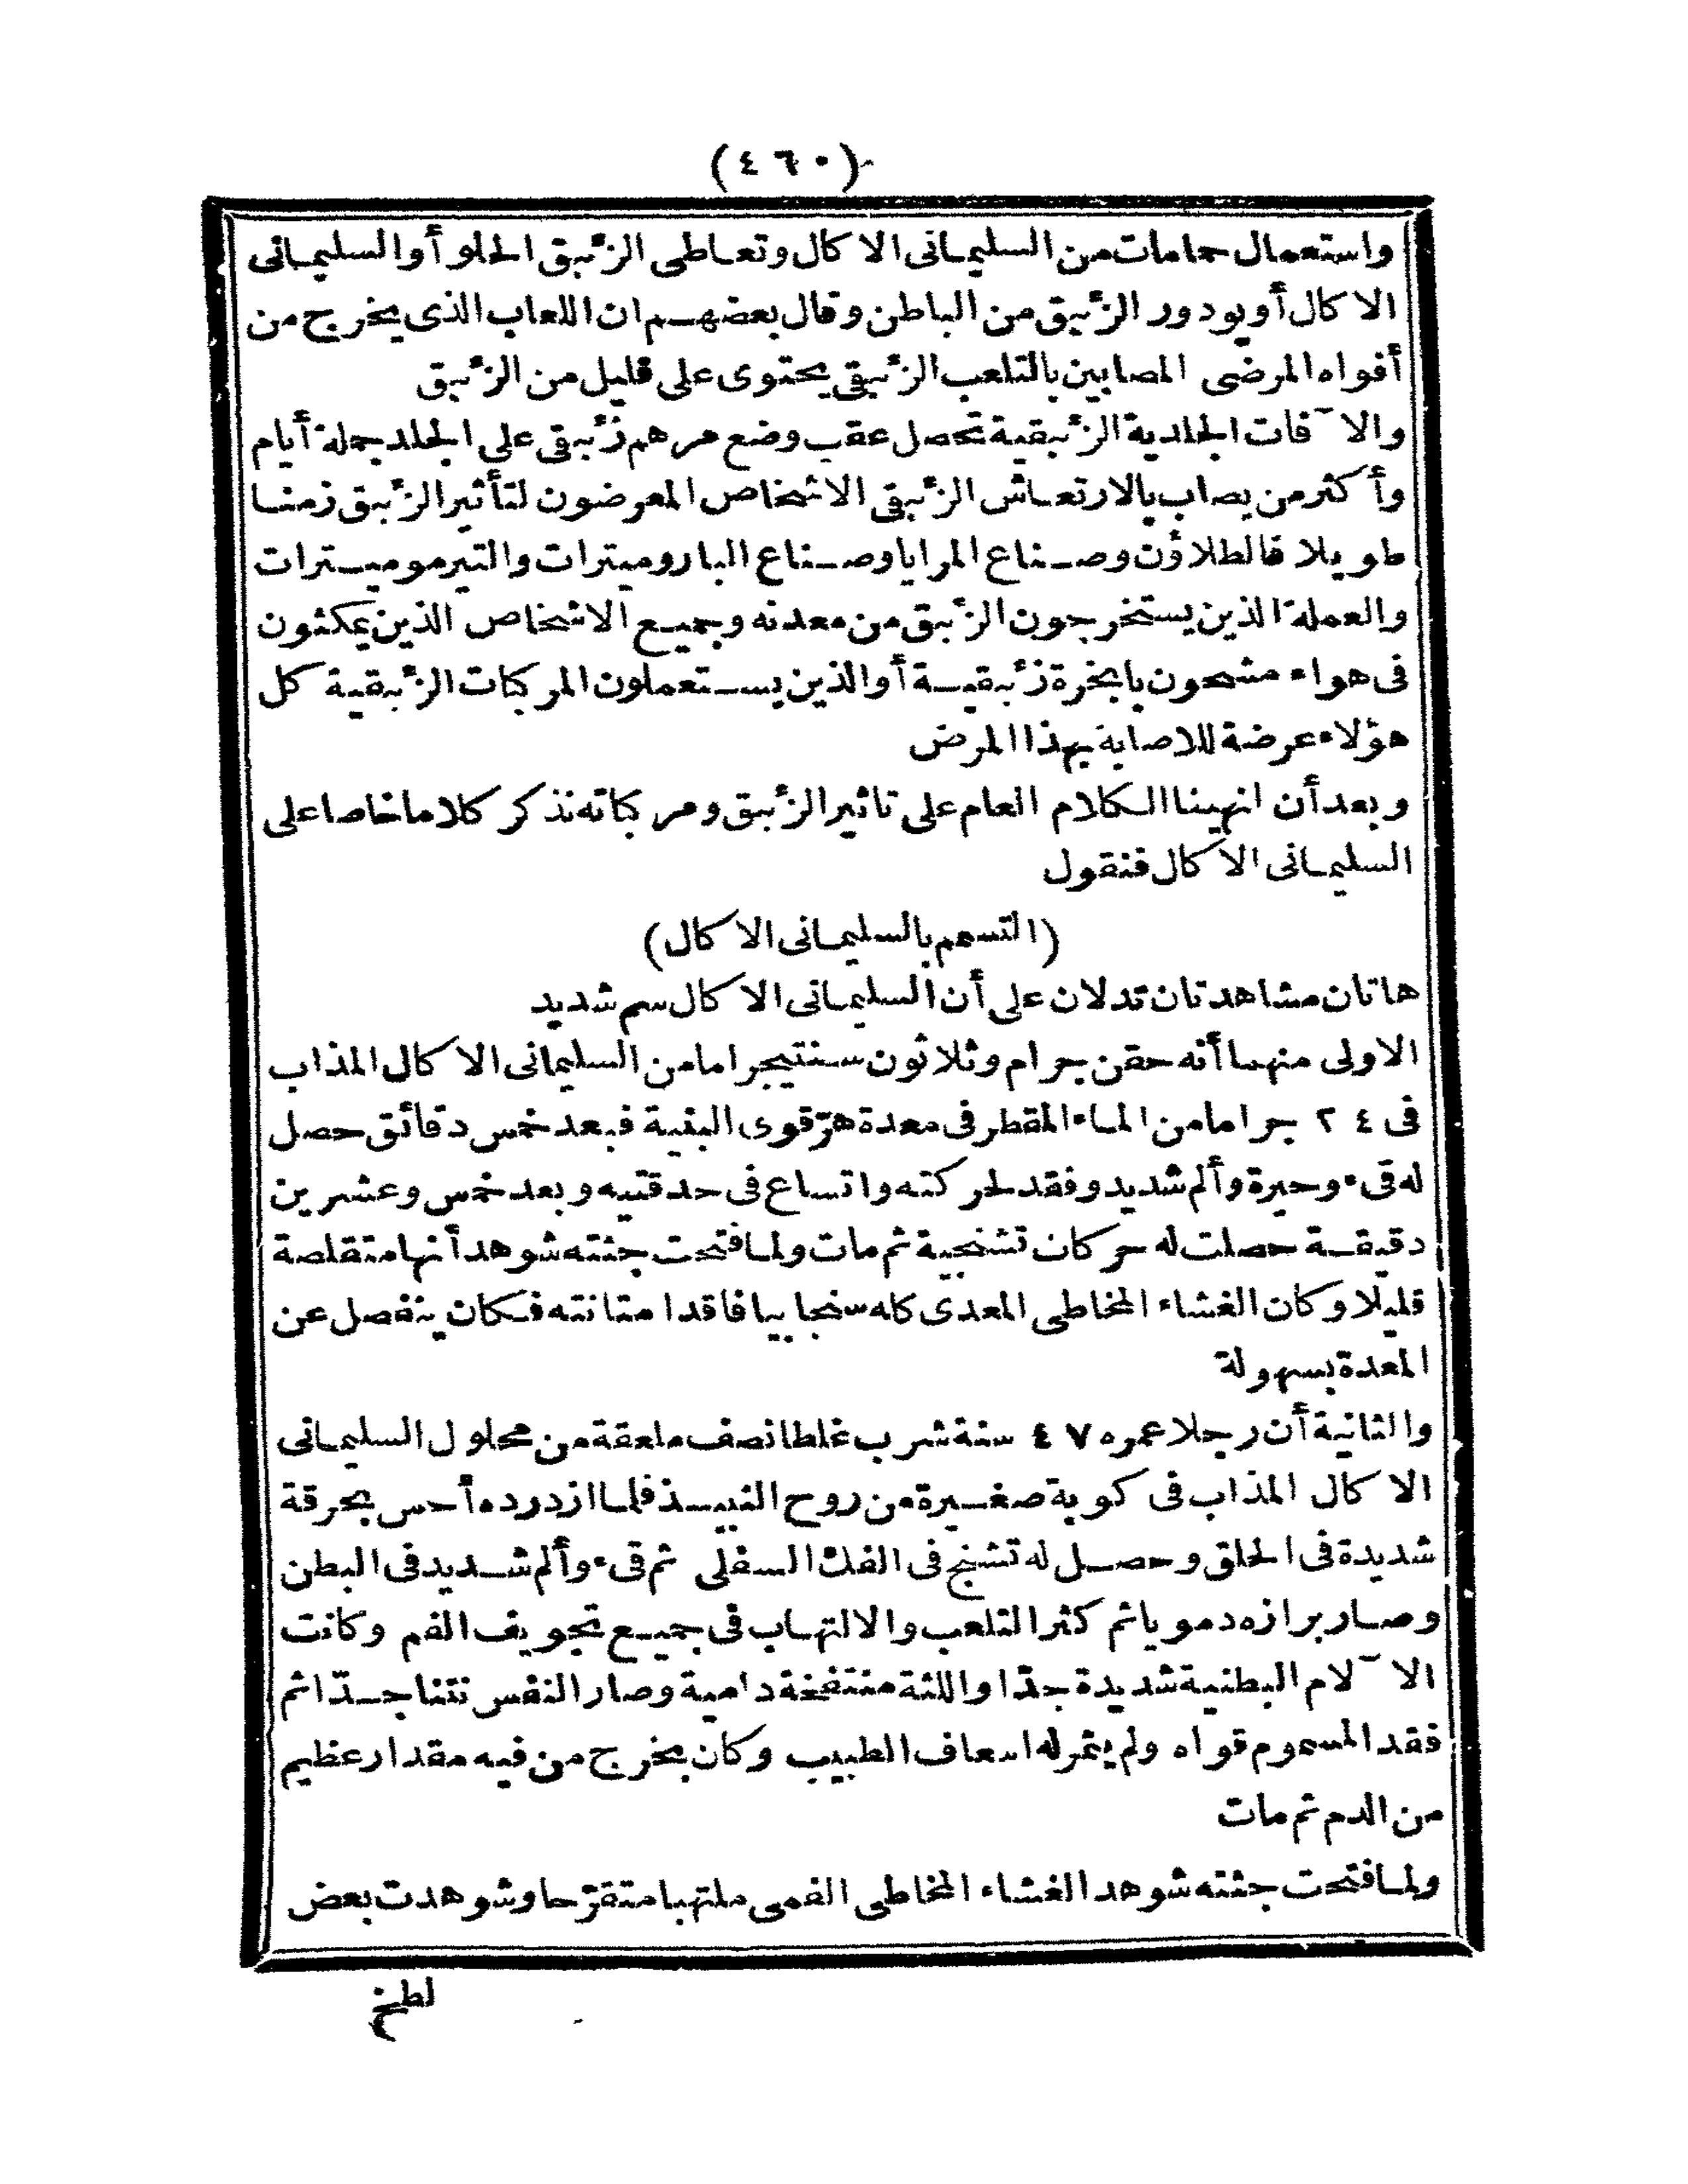 (٤٦٠)
واستعمال حمامات من السليمانى الاكال وتعاطى الزئبق الحلو أو السليمانى
الاكال أو يودور الزئبق من الباطن وقال بعضهم ان اللعاب الذى يخرج من
أفواه المرضى المصابين بالتلعب الزئبقى يحتوى على قليل من الزئبق
والآفات الجلدية الزئبقية تحصل عقب وضع مرهم زئبقى على الجلد جملة أيام
وأكثر من يصاب بالارتعاش الزئبقى الاشخاص المعرضون لتأثير الزئبق زمنا
طويلا فالطلاؤن وصناع المرايا وصناع البارومیترات والتيرموميترات
والعملة الذين يستخرجون الزئبق من معدنه وجميع الاشخاص الذين يمكثون
فى هواء مشحون بابخرة زئبقية أو الذين يستعملون المركبات الزئبقية كل
هؤلاء عرضة للاصابة بهذا المرض
وبعد أن انهينا الكلام العام على تاثير الزئبق ومركباته نذكر كلاما خاصا على
السليمانى الاكال فنقول
(التسمم بالسليمانى الاكال)
هاتان مشاهدتان تدلان على أن السليمانى الاكال سم شديد
الاولى منهما أنه حقن جرام وثلاثون سنتيجراما من السليمانى الاكال المذاب
فى ٢٤ جراما من الماء المقطر فى معدة هرّ قوى البنية فبعد خمس دقائق حصل
له قىء وحيرة وألم شديد وفقد لحركته واتساع فى حدقتيه وبعد خمس وعشرين
دقيقة حصلت له حركات تشنجية ثم مات ولما فتحت جثته شوهد أنها متقلصة
قليلا وكان الغشاء المخاطى المعدى كله سنجابيا فاقدا متانته فكان ينفصل عن
المعدة بسهولة
والثانية أن رجلا عمره ٤٧ سنة شرب غلطا نصف ملعقة من محلول السليمانى
الاكال المذاب فى كوبة صغيرة من روح النبيذ فلما ازدرده أحس بحرقة
شديدة فى الحلق وحصل له تشنج فى الفك السفلى ثم قىء وألم شديد فى البطن
وصار برازه دمويا ثم كثر التلعب والالتهاب فى جميع تجويف الفم وكانت
الآلام البطنية شديدة جدّا واللثة منتفخة دامية وصار النفس نتنا جدّا ثم
فقد المسموم قواه ولم يثمر له اسعاف الطبيب وكان يخرج من فيه مقدار عظيم
من الدم ثم مات
ولما فتحت جثته شوهد الغشاء المخاطى الفمى ملتهبا متقرّحا وشوهدت بعض
لطخ